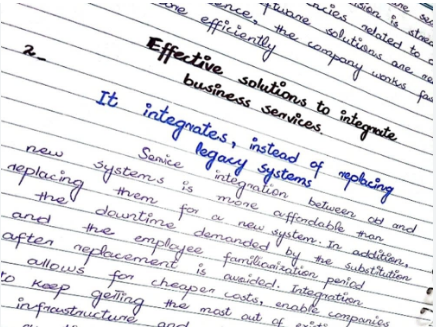 sion is strea
ence, the ncies related to a
tware solutions are ne
one efficiently the company works fas
2.
Effective solutions to integrate
business services.
It integrates, instead of replacing
legacy systems
Service integration between old and
new systems is more affordable than
replacing them for a new system. In addition,
the downtime demanded by the substitution
and the employee familiarization period
after replacement is avoided. Integration
allows for cheaper costs, enable companies
to keep getting the most out of
infrastructure and